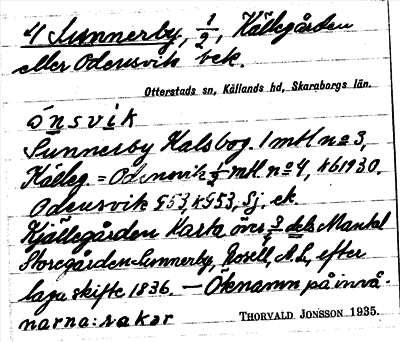 4 Sunnerby, 1/2, Källegården
eller Odensvik bek.
Otterstads sn, Kållands hd, Skaraborgs län.
ónsvik
Sunnerby Halsbog. 1 mtl no 3,
Källeg. = Odensvik 1/2 mtl. no 4, kb1930.
Odensvik G53, KG53, Sj, ek.
Kjällegården Karta över 3/4 dels Mantal
Storegården-Sunnerby, Rosell, A.L, efter
laga skifte 1836. — Öknamn på invå-
narna: rakar
THORVALD JONSSON 1935.